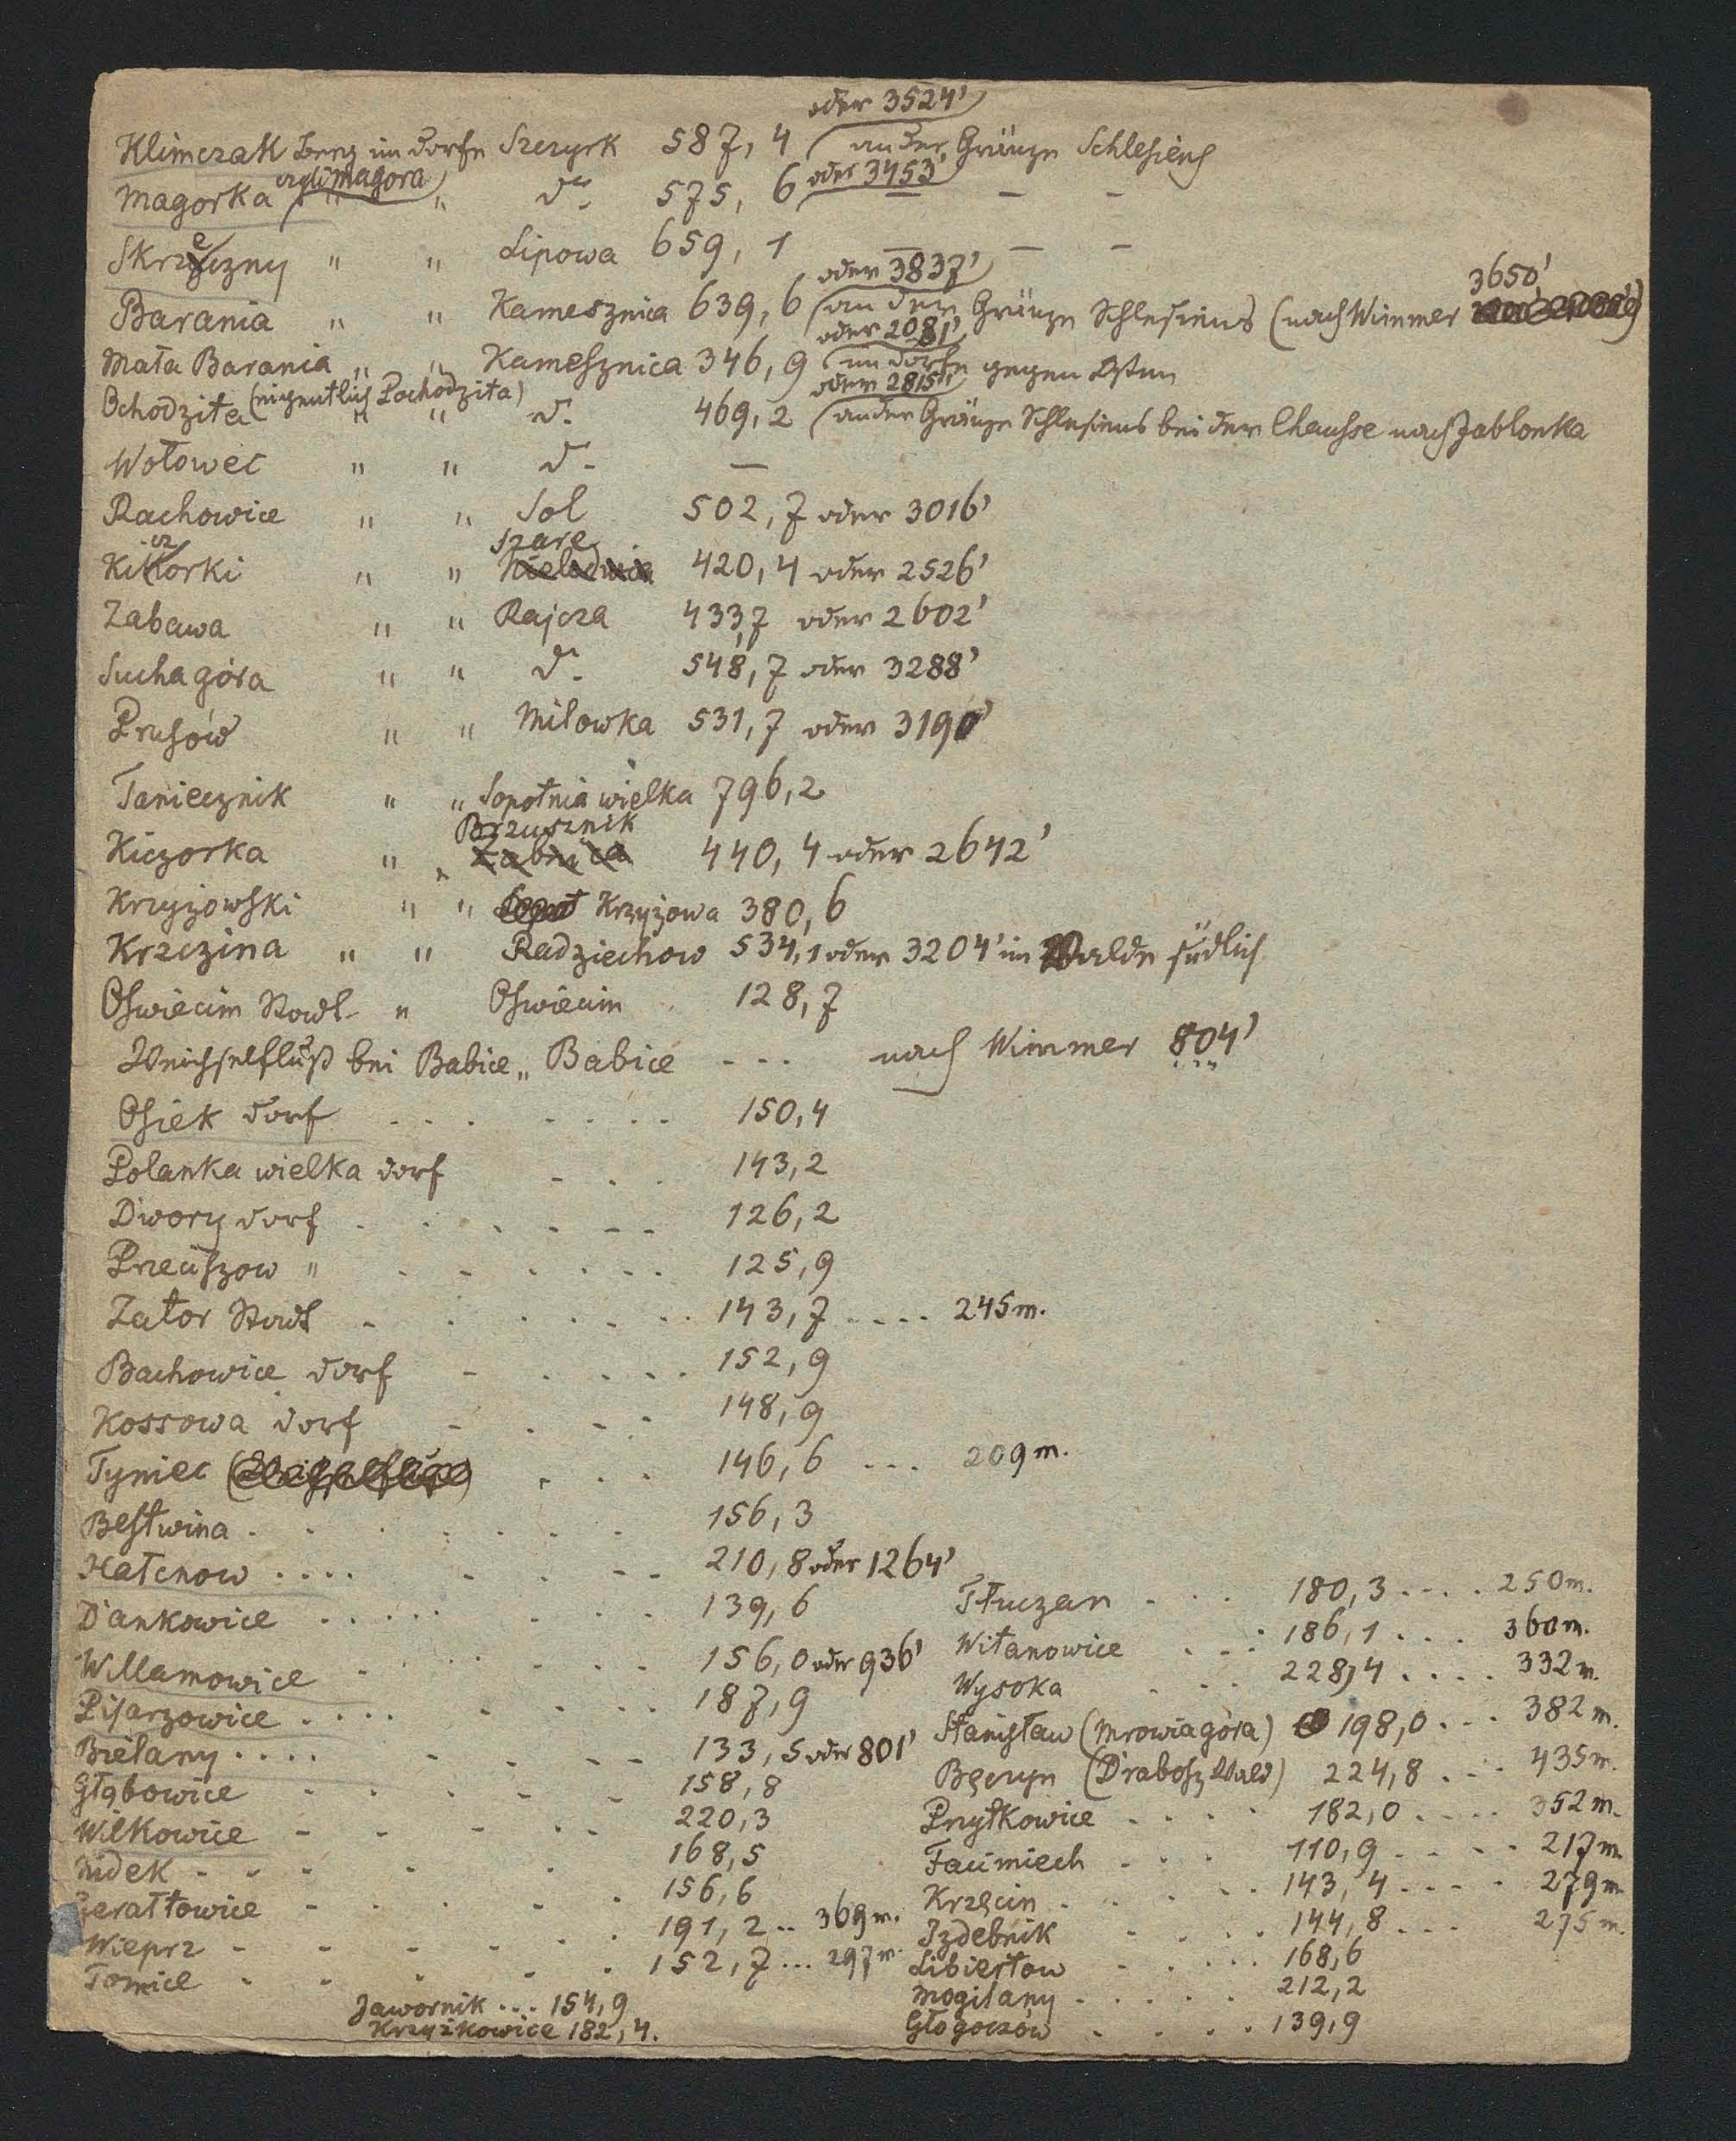 oder 3524'
Klimczak Berg im Dorfe Szczyrk 587,4 an der Gränze Schlesiens
czyli Magora
Magorka " " dº 575,6 oder 3453' — —
Skrzeczny " " Lipowa 659,1 — — —
oder 3837' 3650'
Barania " " Kamesznica 639,6 an der Gränze Schlesiens (nach Wimmer
oder 2081'
Mała Barania " " Kamesznica 346,9 im Dorfe gegen Osten
(eigentlich Pochodzita) oder 2815'
Ochodzita " " dº 469,2 an der Gränze Schlesiens bei der Chausse nach Jablonka
Wołowec " " dº —
Rachowice " " Sol 502,7 oder 3016'
cz Szare
Kikorki " " Nieledwia 420,4 oder 2526'
Zabawa " " Rajcza 433,7 oder 2602'
Sucha góra " " dº 548,7 oder 3288'
Prusów " " Milowka 531,7 oder 3190'
Taniecznik " " Sopotnia wielka 796,2
Brzusznik
Kiczorka " " Zabnica 440,4 oder 2642'
Krzyżowski " " Krzyżowa 380,6
Krzczina " " Radziechow 534,1 oder 3204' im Walde südlich
Oswiecim Stadt " Oswiecim 128,7
Weichselfluß bei Babice " Babice - - - nach Wimmer 804'
Osiek Dorf . . . . . . . 150,4
Polanka wielka Dorf - . . 143,2
Dwory Dorf . . . . . - - 126,2
Przeciszow " . - . . . . 125,9
Zator Stadt - . . . . . . 143,7 .... 245 m.
Bachowice Dorf - . . . . 152,9
Kossowa Dorf - . - . 148,9
Tyniec . . . 146,6 ... 209 m.
Bestwina . . . . . . . 156,3
Hałcnow .... - . - - 210,8 oder 1264'
Dankowice ..... . . . 139,6
Willamowice - . . . . . 156,0 oder 936'
Pisarzowice .... . . . . 187,9
Bielany .... - . - - 133,5 oder 801'
Głębowice - . . . . - 158,8
Wilkowice - - - . . 220,3
Nidek - . - . . 168,5
Gerałtowice - . . . . 156,6
Wieprz - - - - . . 191,2 .. 369 m.
Tomice - - . . . 152,7 ... 297 m.
Jawornik ... 154,9
Krzyżkowice 182,4.
Tłuczan - . . . 180,3 .... 250 m.
Witanowice . . . 186,1 ... 360 m.
Wysoka . . . 228,4 .... 332 m.
Stanisław (Mrowia góra) 198,0 ... 382 m.
Bęczyn (Drabosz Wald) 224,8 ... 435 m.
Przytkowice - . . . 182,0 .... 352 m.
Facimiech - . . 110,9 .... 217 m.
Krzęcin . . . . . 143,4 .... 279 m.
Izdebnik . . . . 144,8 ... 275 m.
Libiertow - . . . . 168,6
Mogilany . . . . . 212,2
Głogoczów . . . . 139,9